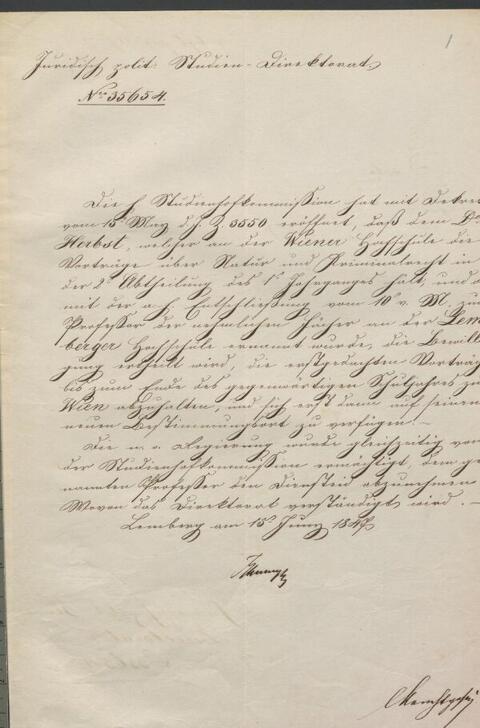 1
Juridisch polit: Studien-Direktorat
Nro 35654.
Die h. Studienhofkommission hat mit Dekret
vom 15 May d. J. Z. 3550 eröffnet, daß dem Dr
Herbst, welcher an der Wiener Hochschule die
Vorträge über Natur und Kriminalrecht in
der 2t Abtheilung des 1t Jahrganges hält, und
mit der a. h. Entschließung vom 10 v. M. zum
Professor der nehmlichen Fächer an der Lem
berger Hochschule ernannt wurde, die Bewilli
gung ertheilt wird, die erstgedachten Vorträge
bis zum Ende des gegenwärtigen Schuljahres zu
Wien abzuhalten, und sich erst dann auf seinen
neuen Bestimmungsort zu verfügen. –
Die n. ö. Regierung wurde gleichzeitig von
der Studienhofkommission ermächtigt, dem ge
nannten Professor den Diensteid abzunehmen
Wovon das Direktorat verständigt wird. –
Lemberg am 15 Juny 1847